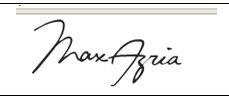 Max Azria